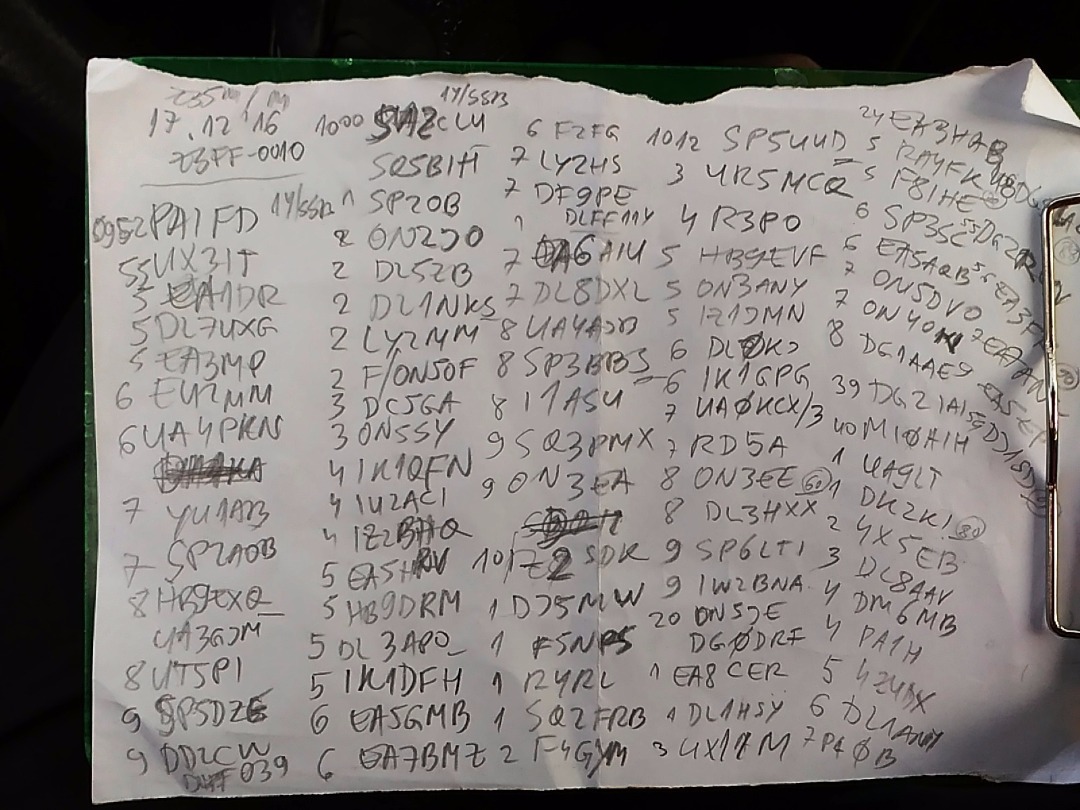 235m/m
17.12'16
Z3FF-0010
0952 PA1FD 14/SSB
55 UX3IT
5 EA1DR
5 DL7UXG
5 EA3MP
6 EU2MM
6 UA4PKN
7 YU1AB
7 SP2AOB
8 HB9EXQ
UA3GJM
8 UT5PI
9 SP5DZE
9 DD2CW
DLFF 039
14/SSB
1000
SQ5BIH
1 SP2OB
2 ON2JO
2 DL5ZB
2 DL1NKS
2 LY2MM
2 F/ON5OF
3 DC5GA
3 ON5SY
4 IK1QFN
4 IU2ACI
4 IZ2BHQ
5 EA5HRV
5 HB9DRM
5 DL3APO
5 IK1DFH
6 EA5GMB
6 EA7BMZ
6 F2FG
7 LY2HS
7 DF9PE
1 DLFF 114
7 6AIU
7 DL8DXL
8 UA4AJB
8 SP3BBS
8 I1ASU
9 SQ3PMX
9 ON3EA
10 SDK
1 DJ5MW
1 F5NPS
1 R4RL
1 SQ2FRB
2 F4GYM
1012 SP5UUD
3 UR5MCQ
4 R3PO
5 HB9EVF
5 ON3ANY
5 IZ1JMN
6 DLØKJ
6 IK1GPG
7 UAØKCX/3
7 RD5A
8 ON3EE
8 DL3HXX
9 SP6LTI
9 IW2BNA
20 ON5JE
DGØDRF
1 EA8CER
1 DL1HSY
3 UX1AM
24 EA3HAB
5 RA4FK
5 F8IHE
6 SP3SC
6 EA5AQB
7 ON5DVO
7 ON4ON
8 DG1AAE
39 DG21AI
40 MIØAIH
1 UA9LT
1 DK2KI 80
2 4X5EB
3 DL8AAV
4 DM6MB
4 PA1H
5 4Z4BX
6 DL1AMY
7 PAØB